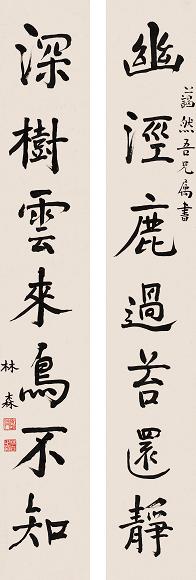 幽逕鹿過苔還靜
藹然吾兄属書
深樹雲來鳥不知
林森